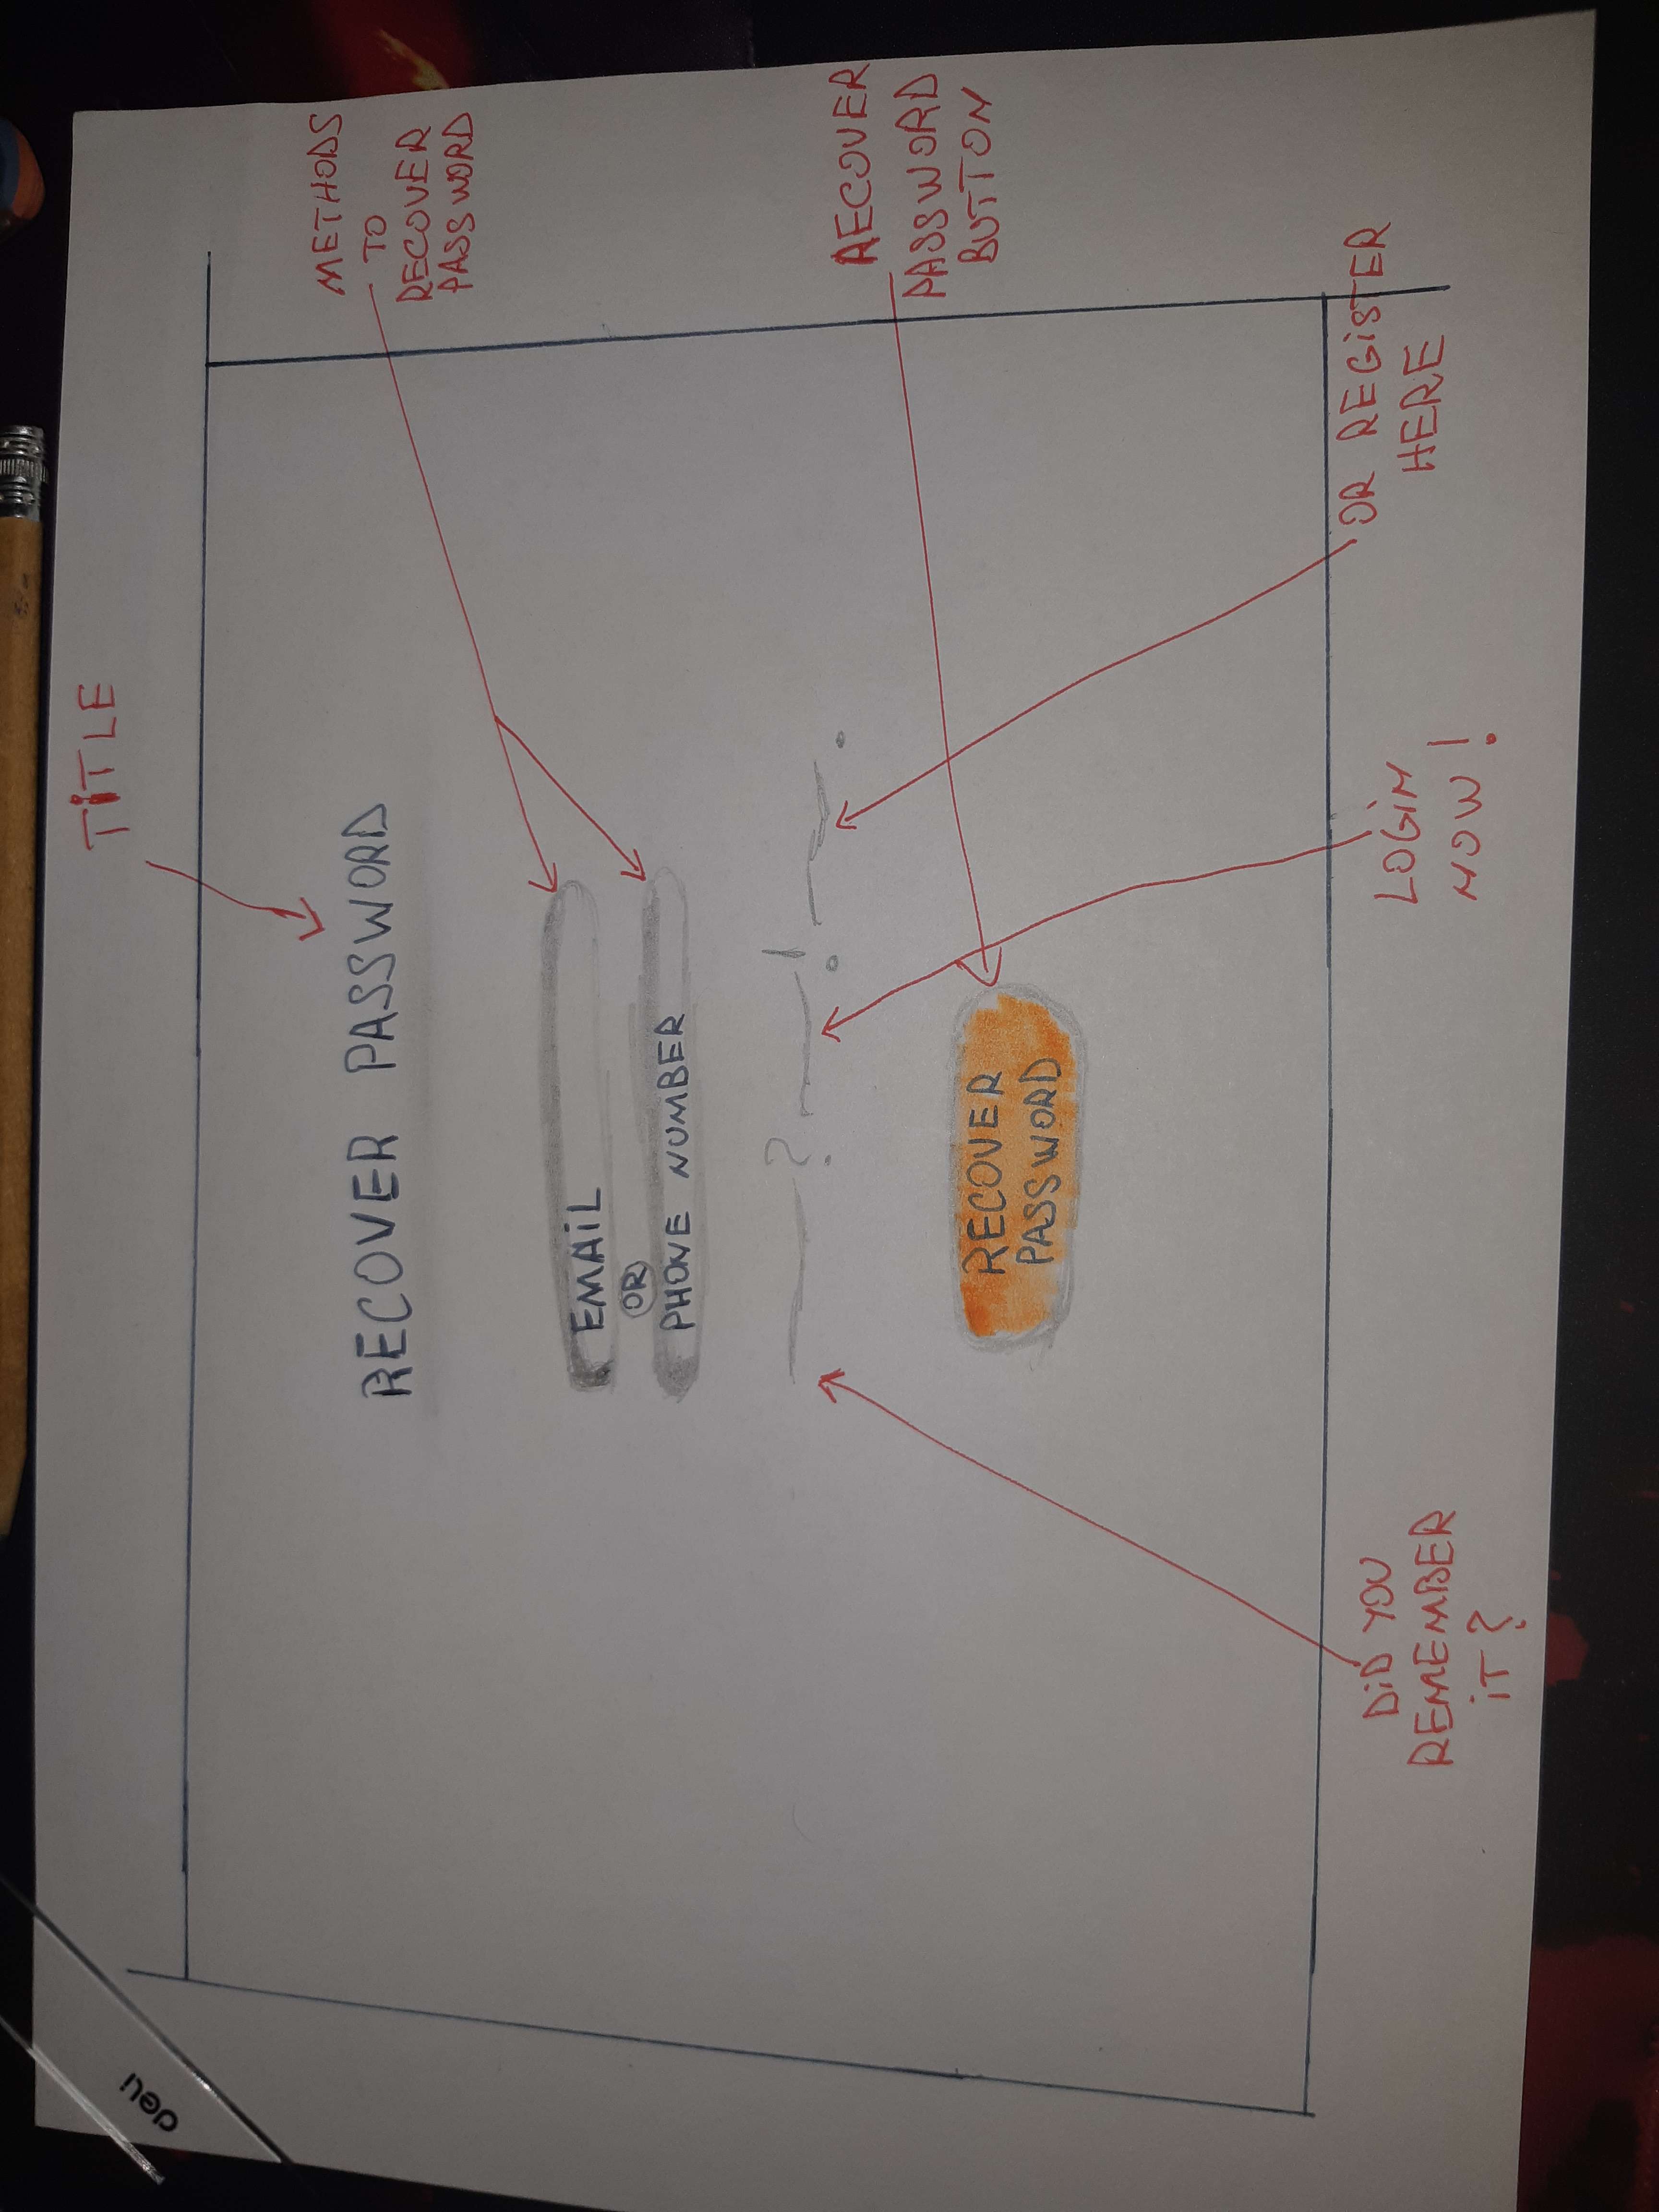 deli
TiTLE
RECOVER PASSWORD
METHODS
TO
RECOVER
PASSWORD
EMAiL
OR
PHONE NUMBER
? ! .
RECOVER
PASSWORD
BUTTON
RECOVER
PASSWORD
DiD YOU
REMEMBER
iT?
LOGiN
NOW!
OR REGiSTER
HERE